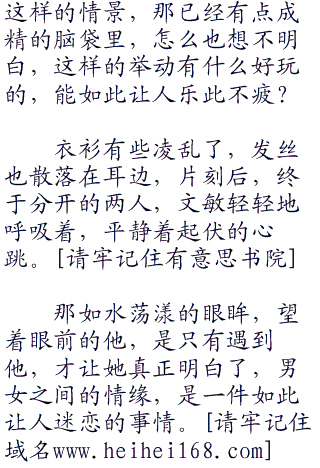 这样的情景，那已经有点成
精的脑袋里，怎么也想不明
白，这样的举动有什么好玩
的，能如此让人乐此不疲？
衣衫有些凌乱了，发丝
也散落在耳边，片刻后，终
于分开的两人，文敏轻轻地
呼吸着，平静着起伏的心
跳。[请牢记住有意思书院]
那如水荡漾的眼眸，望
着眼前的他，是只有遇到
他，才让她真正明白了，男
女之间的情缘，是一件如此
让人迷恋的事情。[请牢记住
域名www.heihei168.com]